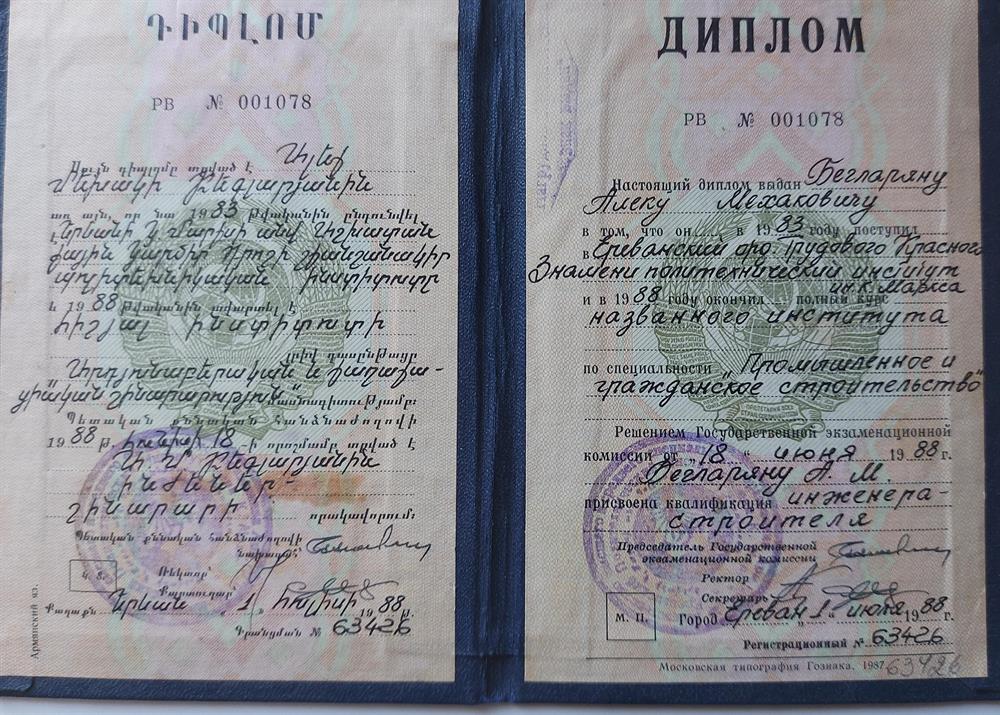 ԴԻՊԼՈՄ
РВ № 001078
Սույն դիպլոմը տրված է Ալեկ
Մեխակի Բեգլարյանին
առ այն, որ նա 1983 թվականին ընդունվել է
Երևանի Կ. Մարքսի անվ. Աշխատան
քային Կարմիր Դրոշի շքանշանակիր
պոլիտեխնիկական ինստիտուտը
և 1988 թվականին ավարտել է
հիշյալ ինստիտուտի
լրիվ դասընթացը
„Արդյունաբերական և քաղաքա-
ցիական շինարարություն“
մասնագիտությամբ:
Պետական քննական հանձնաժողովի
1988 թ. հունիսի 18 -ի որոշմամբ տրված է
Ա. Մ. Բեգլարյանին
ինժեներ-
շինարարի որակավորում:
Պետական քննական հանձնաժողովի
նախագահ՝
Ռեկտոր՝
Կ. Տ.
Քարտուղար՝
Քաղաքն Երևան „1“ հուլիսի 1988 թ.
Գրանցման № 63426
Армянский яз.
ДИПЛОМ
РВ № 001078
Настоящий диплом выдан Бегларяну
Алеку Мехаковичу
в том, что он в 1983 году поступил
в Ереванский орд. Трудового Красного
Знамени политехнический институт
им. К. Маркса
и в 1988 году окончил полный курс
названного института
по специальности „Промышленное и
гражданское строительство“
Решением Государственной экзаменационной
комиссии от „18“ июня 1988 г.
Бегларяну А. М.
присвоена квалификация инженера-
строителя
Председатель Государственной
экзаменационной комиссии
Ректор
Секретарь
М. П.
Город Ереван „1“ июля 1988 г.
Регистрационный № 63426
Московская типография Гознака. 1987.
63426